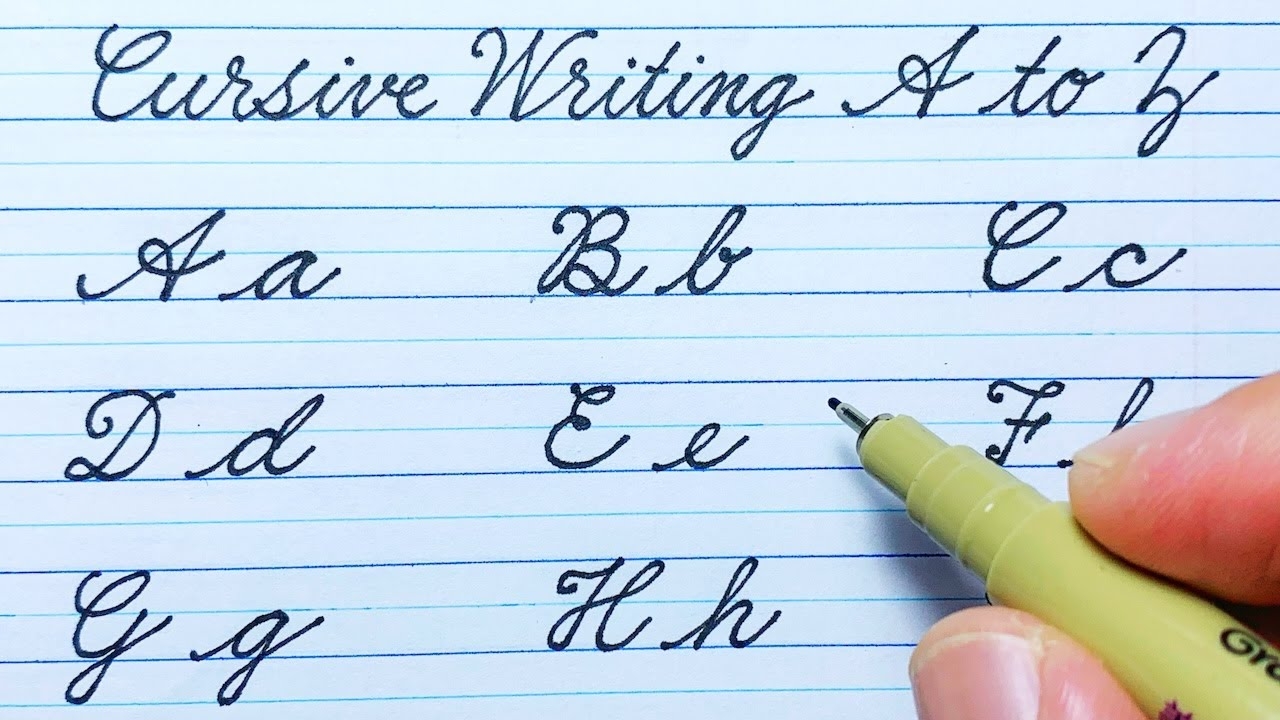 Cursive Writing A to Z
A a B b C c
D d E e F
G g H h
Gra